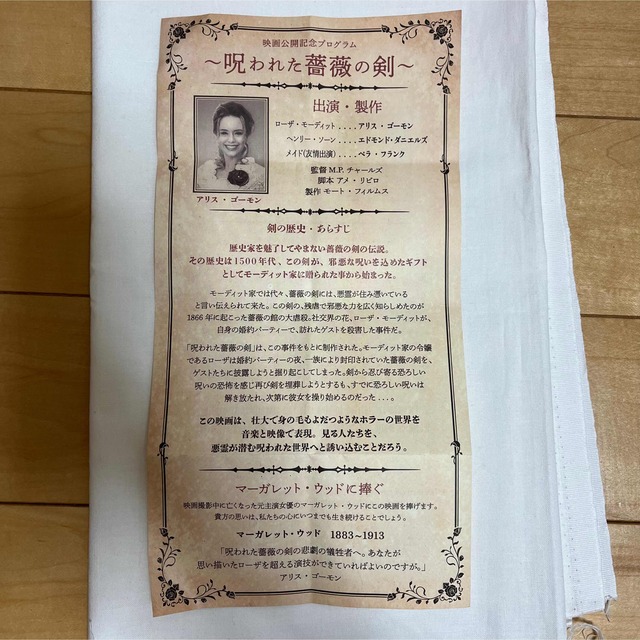 映画公開記念プログラム
～呪われた薔薇の剣～
出演・製作
ローザ・モーディット....アリス・ゴーモン
ヘンリー・ソーン....エドモンド・ダニエルズ
メイド(友情出演)....ベラ・フランク
監督 M.P. チャールズ
脚本 アメ・リビロ
製作 モート・フィルムス
アリス・ゴーモン
剣の歴史・あらすじ
歴史家を魅了してやまない薔薇の剣の伝説。
その歴史は1500年代、この剣が、邪悪な呪いを込めたギフト
としてモーディット家に贈られた事から始まった。
モーディット家では代々、薔薇の剣には、悪霊が住み憑いている
と言い伝えられて来た。この剣の、残虐で邪悪な力を広く知らしめたのが
1866年に起こった薔薇の館の大虐殺。社交界の花、ローザ・モーディットが、
自身の婚約パーティーで、訪れたゲストを殺害した事件だ。
「呪われた薔薇の剣」は、この事件をもとに制作された。モーディット家の令嬢
であるローザは婚約パーティーの夜、一族により封印されていた薔薇の剣を、
ゲストたちに披露しようと掘り起こしてしまった。剣から忍び寄る恐ろしい
呪いの恐怖を感じ再び剣を埋葬しようとするも、すでに恐ろしい呪いは
解き放たれ、次第に彼女を操り始めるのだった....。
この映画は、壮大で身の毛もよだつようなホラーの世界を
音楽と映像で表現。見る人たちを、
悪霊が潜む呪われた世界へと誘い込むことだろう。
マーガレット・ウッドに捧ぐ
映画撮影中に亡くなった元主演女優のマーガレット・ウッドにこの映画を捧げます。
貴方の思いは、私たちの心にいつまでも生き続けることでしょう。
マーガレット・ウッド 1883～1913
「呪われた薔薇の剣の悲劇の犠牲者へ。あなたが
思い描いたローザを超える演技ができていればよいのですが。」
アリス・ゴーモン